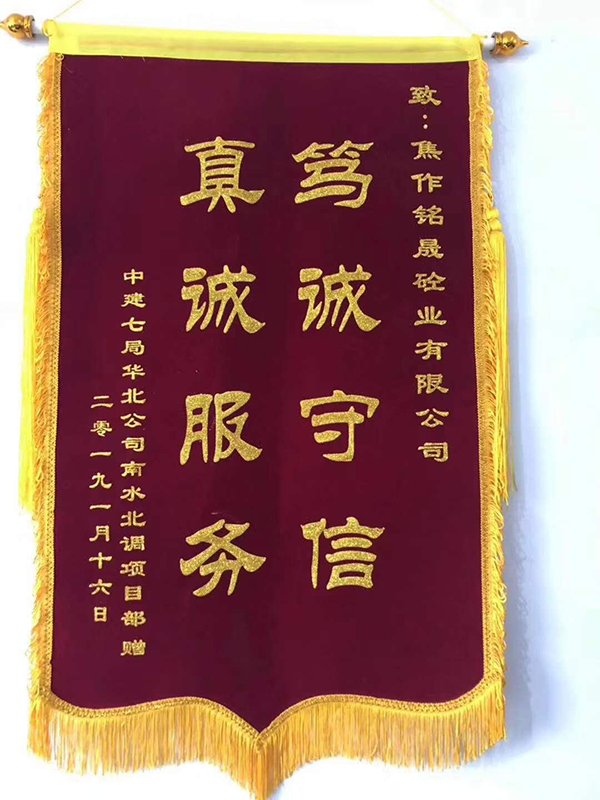 致：焦作铭晟砼业有限公司
笃诚守信
真诚服务
中建七局华北公司南水北调项目部赠
二零一九一月十六日